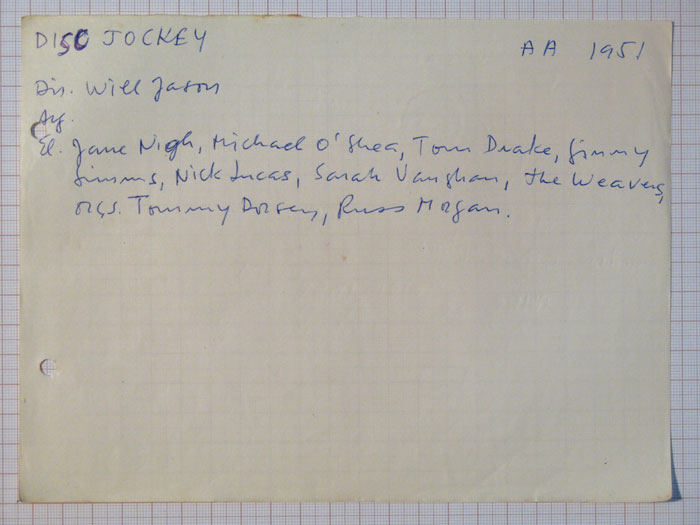 DISC JOCKEY AA 1951
Dir. Will Jason
Ay.
El. Jane Nigh, Michael O'Shea, Tom Drake, Ginny
Simms, Nick Lucas, Sarah Vaughan, The Weavers,
orqs. Tommy Dorsey, Russ Morgan.